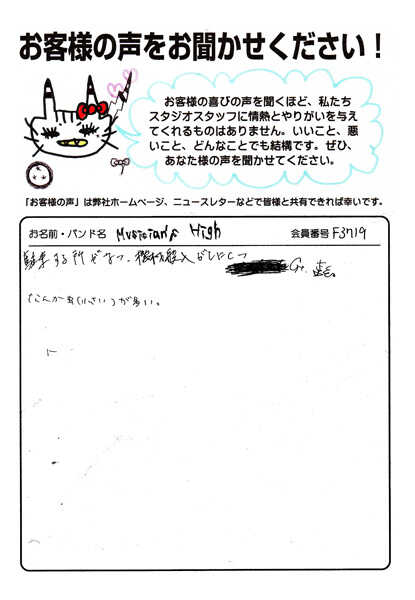 お客様の声をお聞かせください！
お客様の喜びの声を聞くほど、私たち
スタジオスタッフに情熱とやりがいを与え
てくれるものはありません。いいこと、悪
いこと、どんなことでも結構です。ぜひ、
あなた様の声を聞かせてください。
「お客様の声」は弊社ホームページ、ニュースレターなどで皆様と共有できれば幸いです。
お名前・バンド名 Musician's High 会員番号 F3719
する所
なんか
が多い。